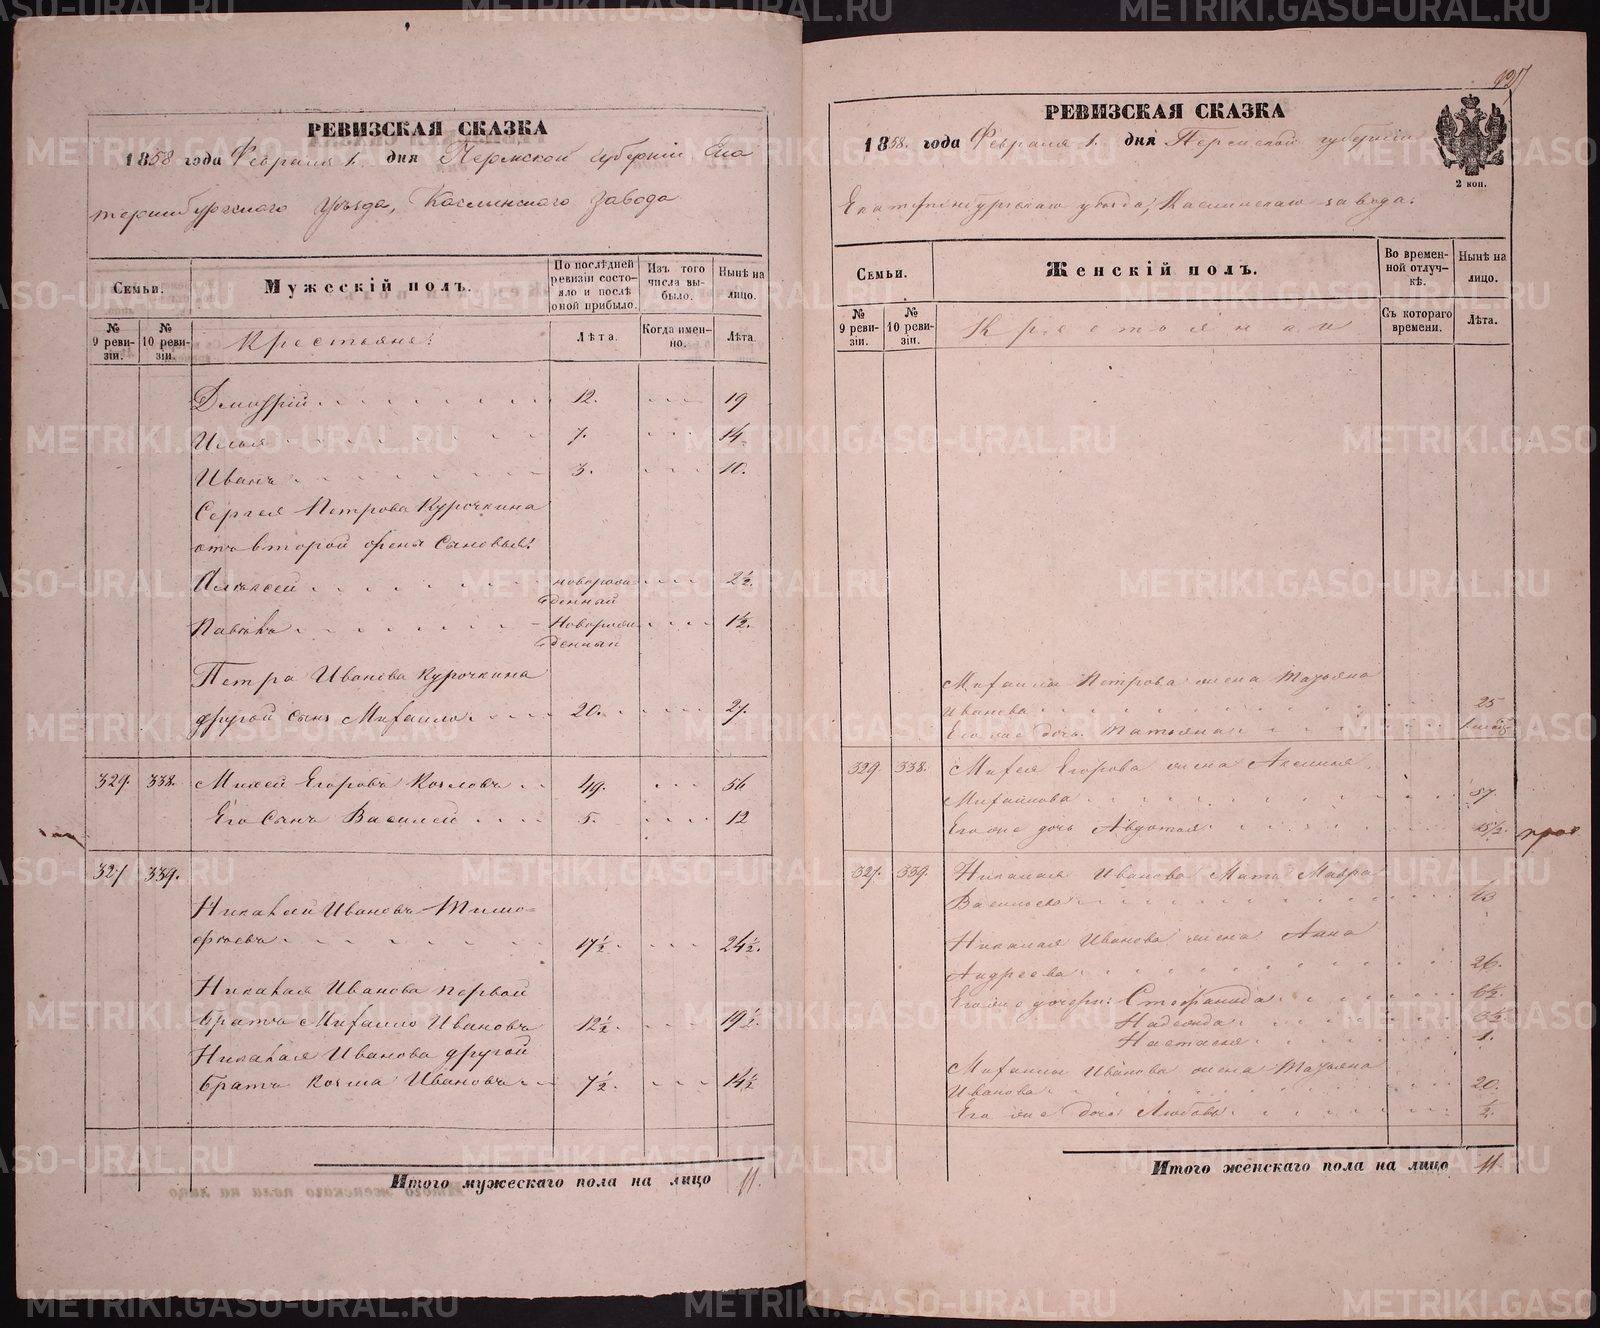 РЕВИЗСКАЯ СКАЗКА
1858 года Февраля 1. дня Пермской губернiи Ека
теринбургскаго Уѣзда, Каслинскаго Завода
Семьи.
Мужескiй полъ.
По послѣдней ревизiи состояло и послѣ оной прибыло.
Изъ того числа выбыло.
Нынѣ на лицо.
№ 9 ревизiи.
№ 10 ревизiи.
Крестьяне:
Лѣта.
Когда именно.
Лѣта.
Дмитрiй 12. 19
Илья 7. 14
Иванъ 3. 10.
Сергея Петрова Курочкина
отъ второй жены сыновья:
Алексей новорожденный 2½.
Новорожденный 1½.
Петра Иванова Курочкина
другой сынъ Михаило 20. 27.
329. 338. Михей Егоровъ Козловъ 49. 56
Его Сынъ Василей 5. 12
327 339.
Николай Ивановъ Тимо-
феевъ 17½. 24½.
Николая Иванова первой
братъ Михаило Ивановъ 12½. 19½.
Николая Иванова другой
братъ Козма Ивановъ 7½. 14½
Итого мужескаго пола на лицо 11.
РЕВИЗСКАЯ СКАЗКА
1858. года Февраля 1. дня Пермской губернiи
2 коп.
Екатеринбургскаго уѣзда, Каслинскаго завода.
Семьи.
Женскiй полъ.
Во временной отлучкѣ.
Нынѣ на лицо.
№ 9 ревизiи.
№ 10 ревизiи.
Крестьянки
Съ котораго времени.
Лѣта.
Михаилы Петрова жена Татьяна
Иванова 25
Его же дочь Татьяна
329. 338. Михея Егорова жена Аксинья
Михайлова 57
Его же дочь Авдотья 15½.
327. 339. Николая Иванова Мать Мавра
Васильева 43
Николая Иванова жена Анна
Андреева 26.
Его же дочери: Стефанида 6½.
Надежда 3½
Настасья 1.
Михаилы Иванова жена Татьяна
Иванова 20.
Его же дочь Любовь ½.
Итого женскаго пола на лицо 11.
METRIKI.GASO-URAL.RU